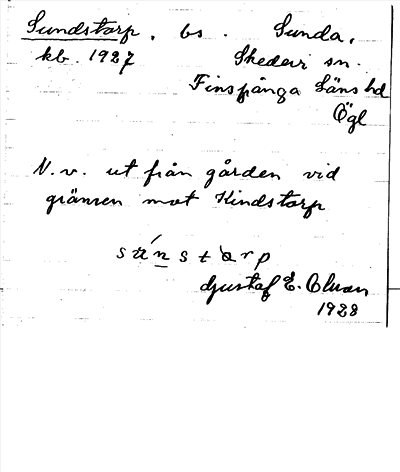 Sundstorp, bs. Sunda,
kb. 1927 Skedevi sn.
Finspånga Läns hd
Ögl
N.v. ut från gården vid
gränsen mot Kindstorp
Gustaf E. Olsson
1928